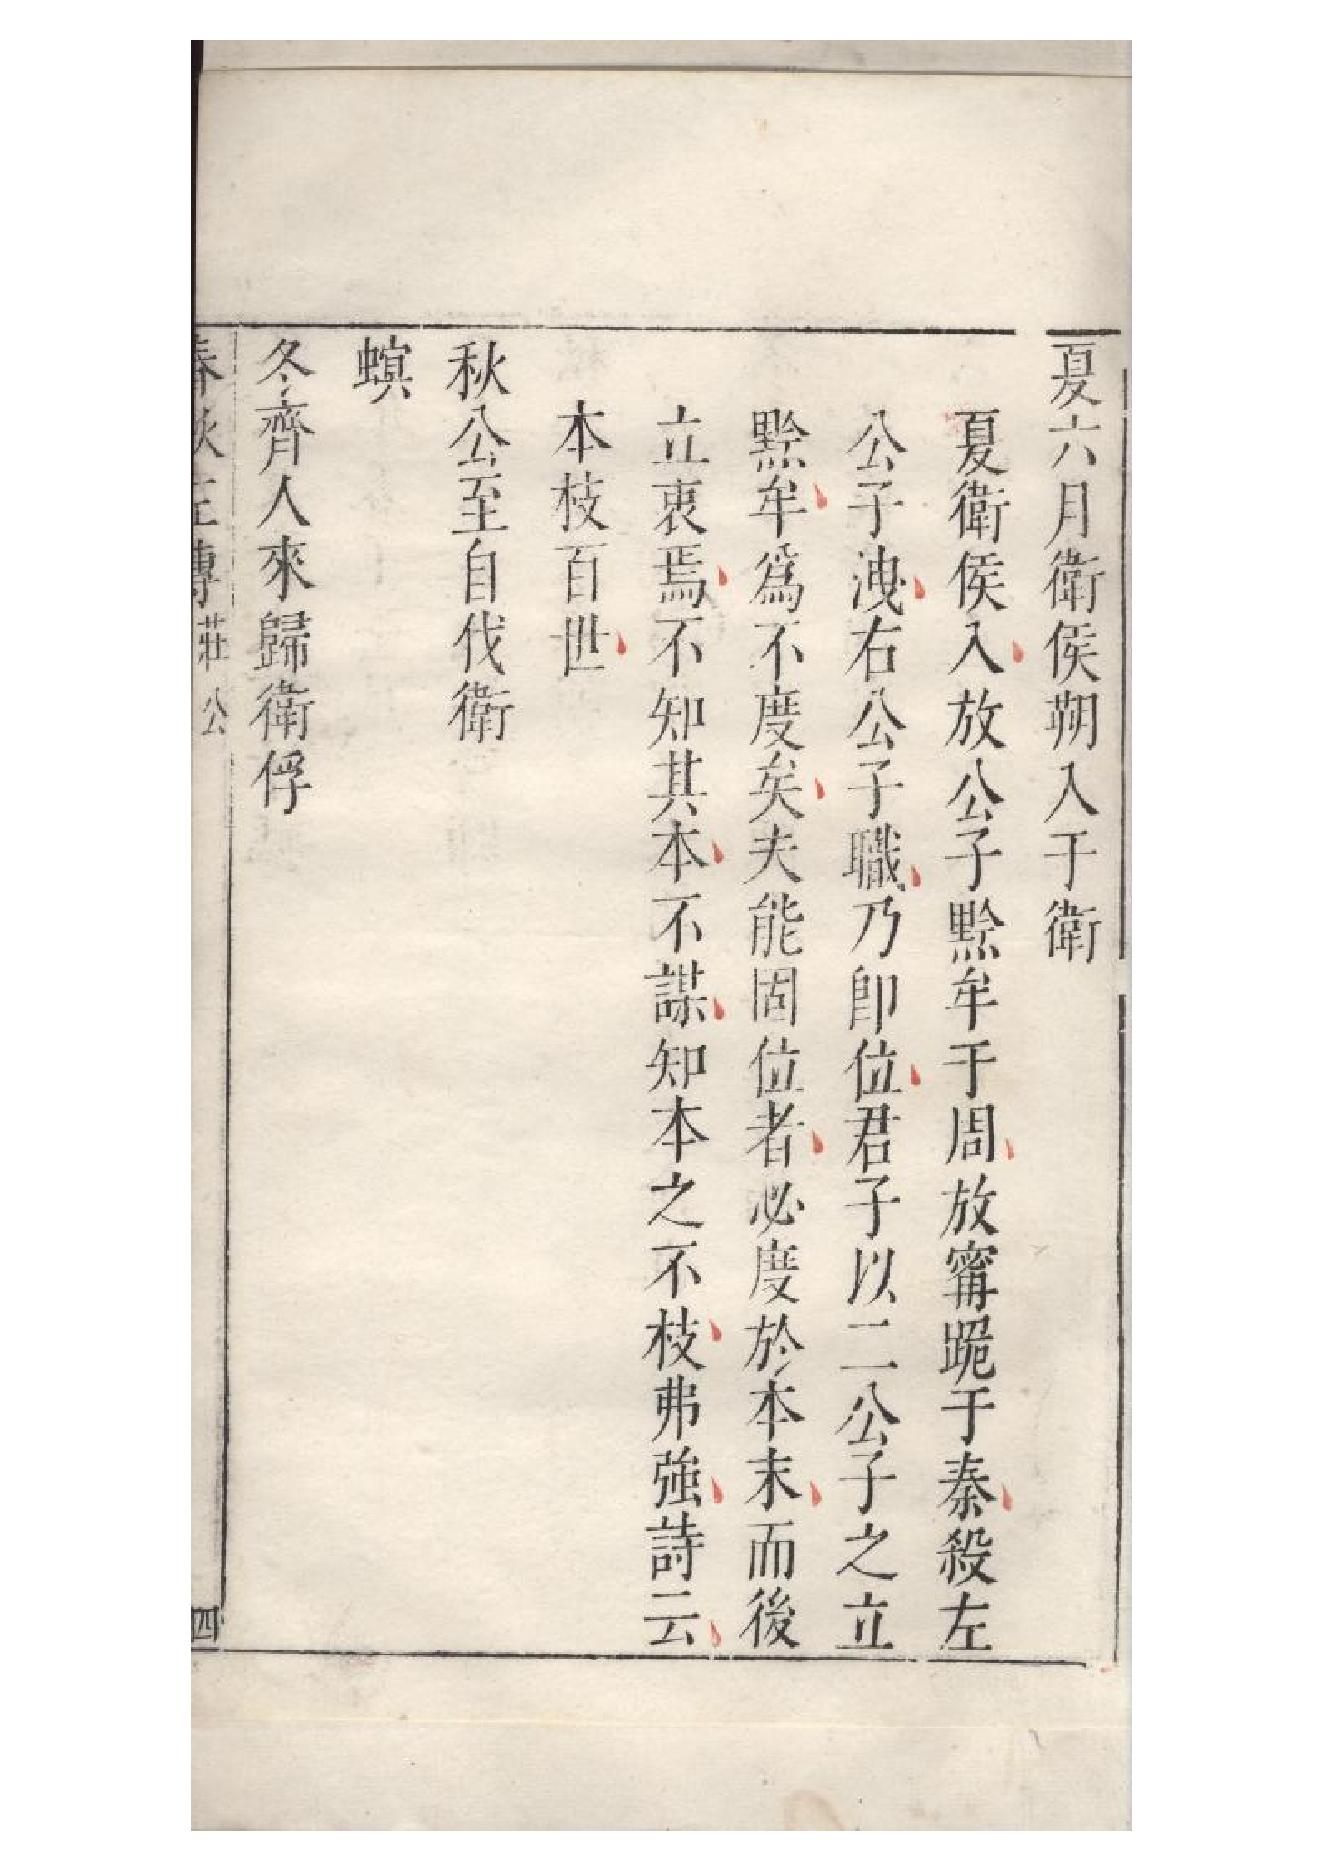 夏六月衛侯朔入于衛
夏衛侯入放公子黔牟于周放甯跪于秦殺左
公子洩右公子職乃卽位君子以二公子之立
黔牟爲不度矣夫能固位者必度於本末而後
立衷焉不知其本不謀知本之不枝弗強詩云
本枝百世
秋公至自伐衛
螟
冬齊人來歸衛俘
春秋左傳 莊公 四